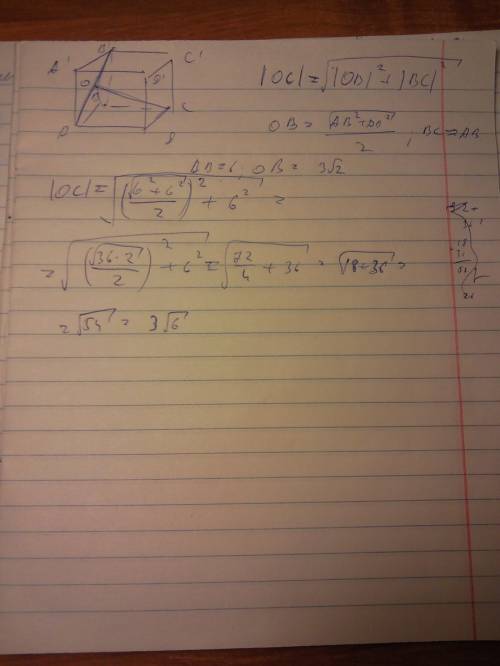 B'
A' C'
O D'
B
C
A D
|OC| = √(|OB|² + |BC|²)
OB = √(AB² + AA'²)/2 ; BC = AB
AB = 6 OB = 3√2
|OC| = √((√(6² + 6²)/2)² + 6²) =
= √((√(36·2)/2)² + 6²) = √(72/4 + 36) = √(18+36) =
= √54 = 3√6